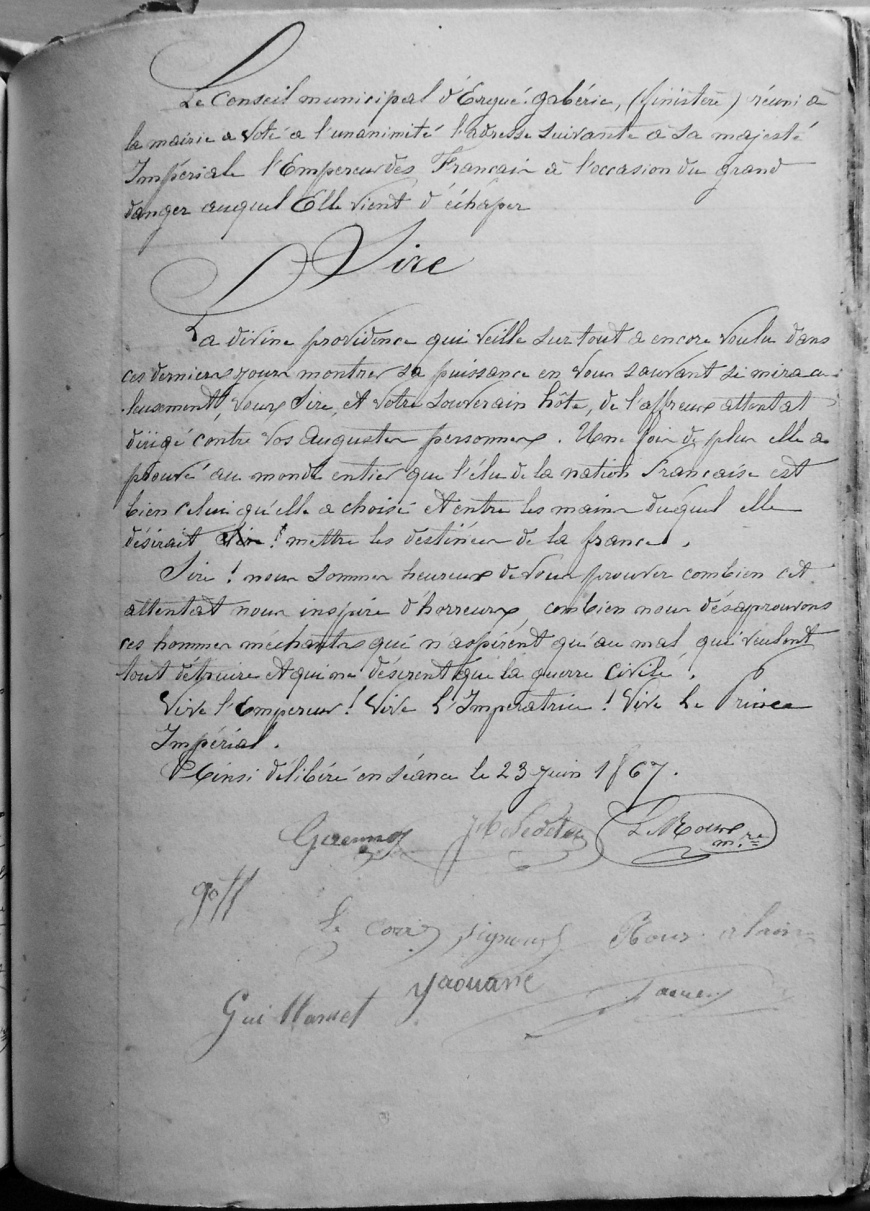 Le Conseil municipal d'Ergué-gabéric, (finistère) réuni a
la mairie a voté a l'unanimité l'adresse suivante à sa majesté
Impériale l'Empereur des Francais à l'occasion du grand
danger auquel Elle vient d'échaper
Sire
La divine providence qui veille sur tout a encore voulu dans
ces derniers jours montrer sa puissance en vous sauvant si miracu-
leusement, vous Sire, et votre souverain hôte, de l'affreux attentat
dirigé contre vos augustes personnes. Une fois de plus elle a
prouvé au monde entier que l'élu de la nation Française est
bien celui qu'elle a choisi et entre les mains duquel elle
désirait mettre les destinées de la france.
Sire ! nous sommes heureux de vous prouver combien cet
attentat nous inspire d'horreurs combien nous désaprouvons
ces hommes méchants qui n'aspirent qu'au mal qui veulent
tout détruire et qui ne désirent que la guerre civile.
Vive l'Empereur ! Vive L'Impératrice ! Vive Le Prince
Impérial.
Ainsi délibéré en séance le 23 juin 1867.
L. Roux
m.re
Le Corre Rous alain
Yaouanc